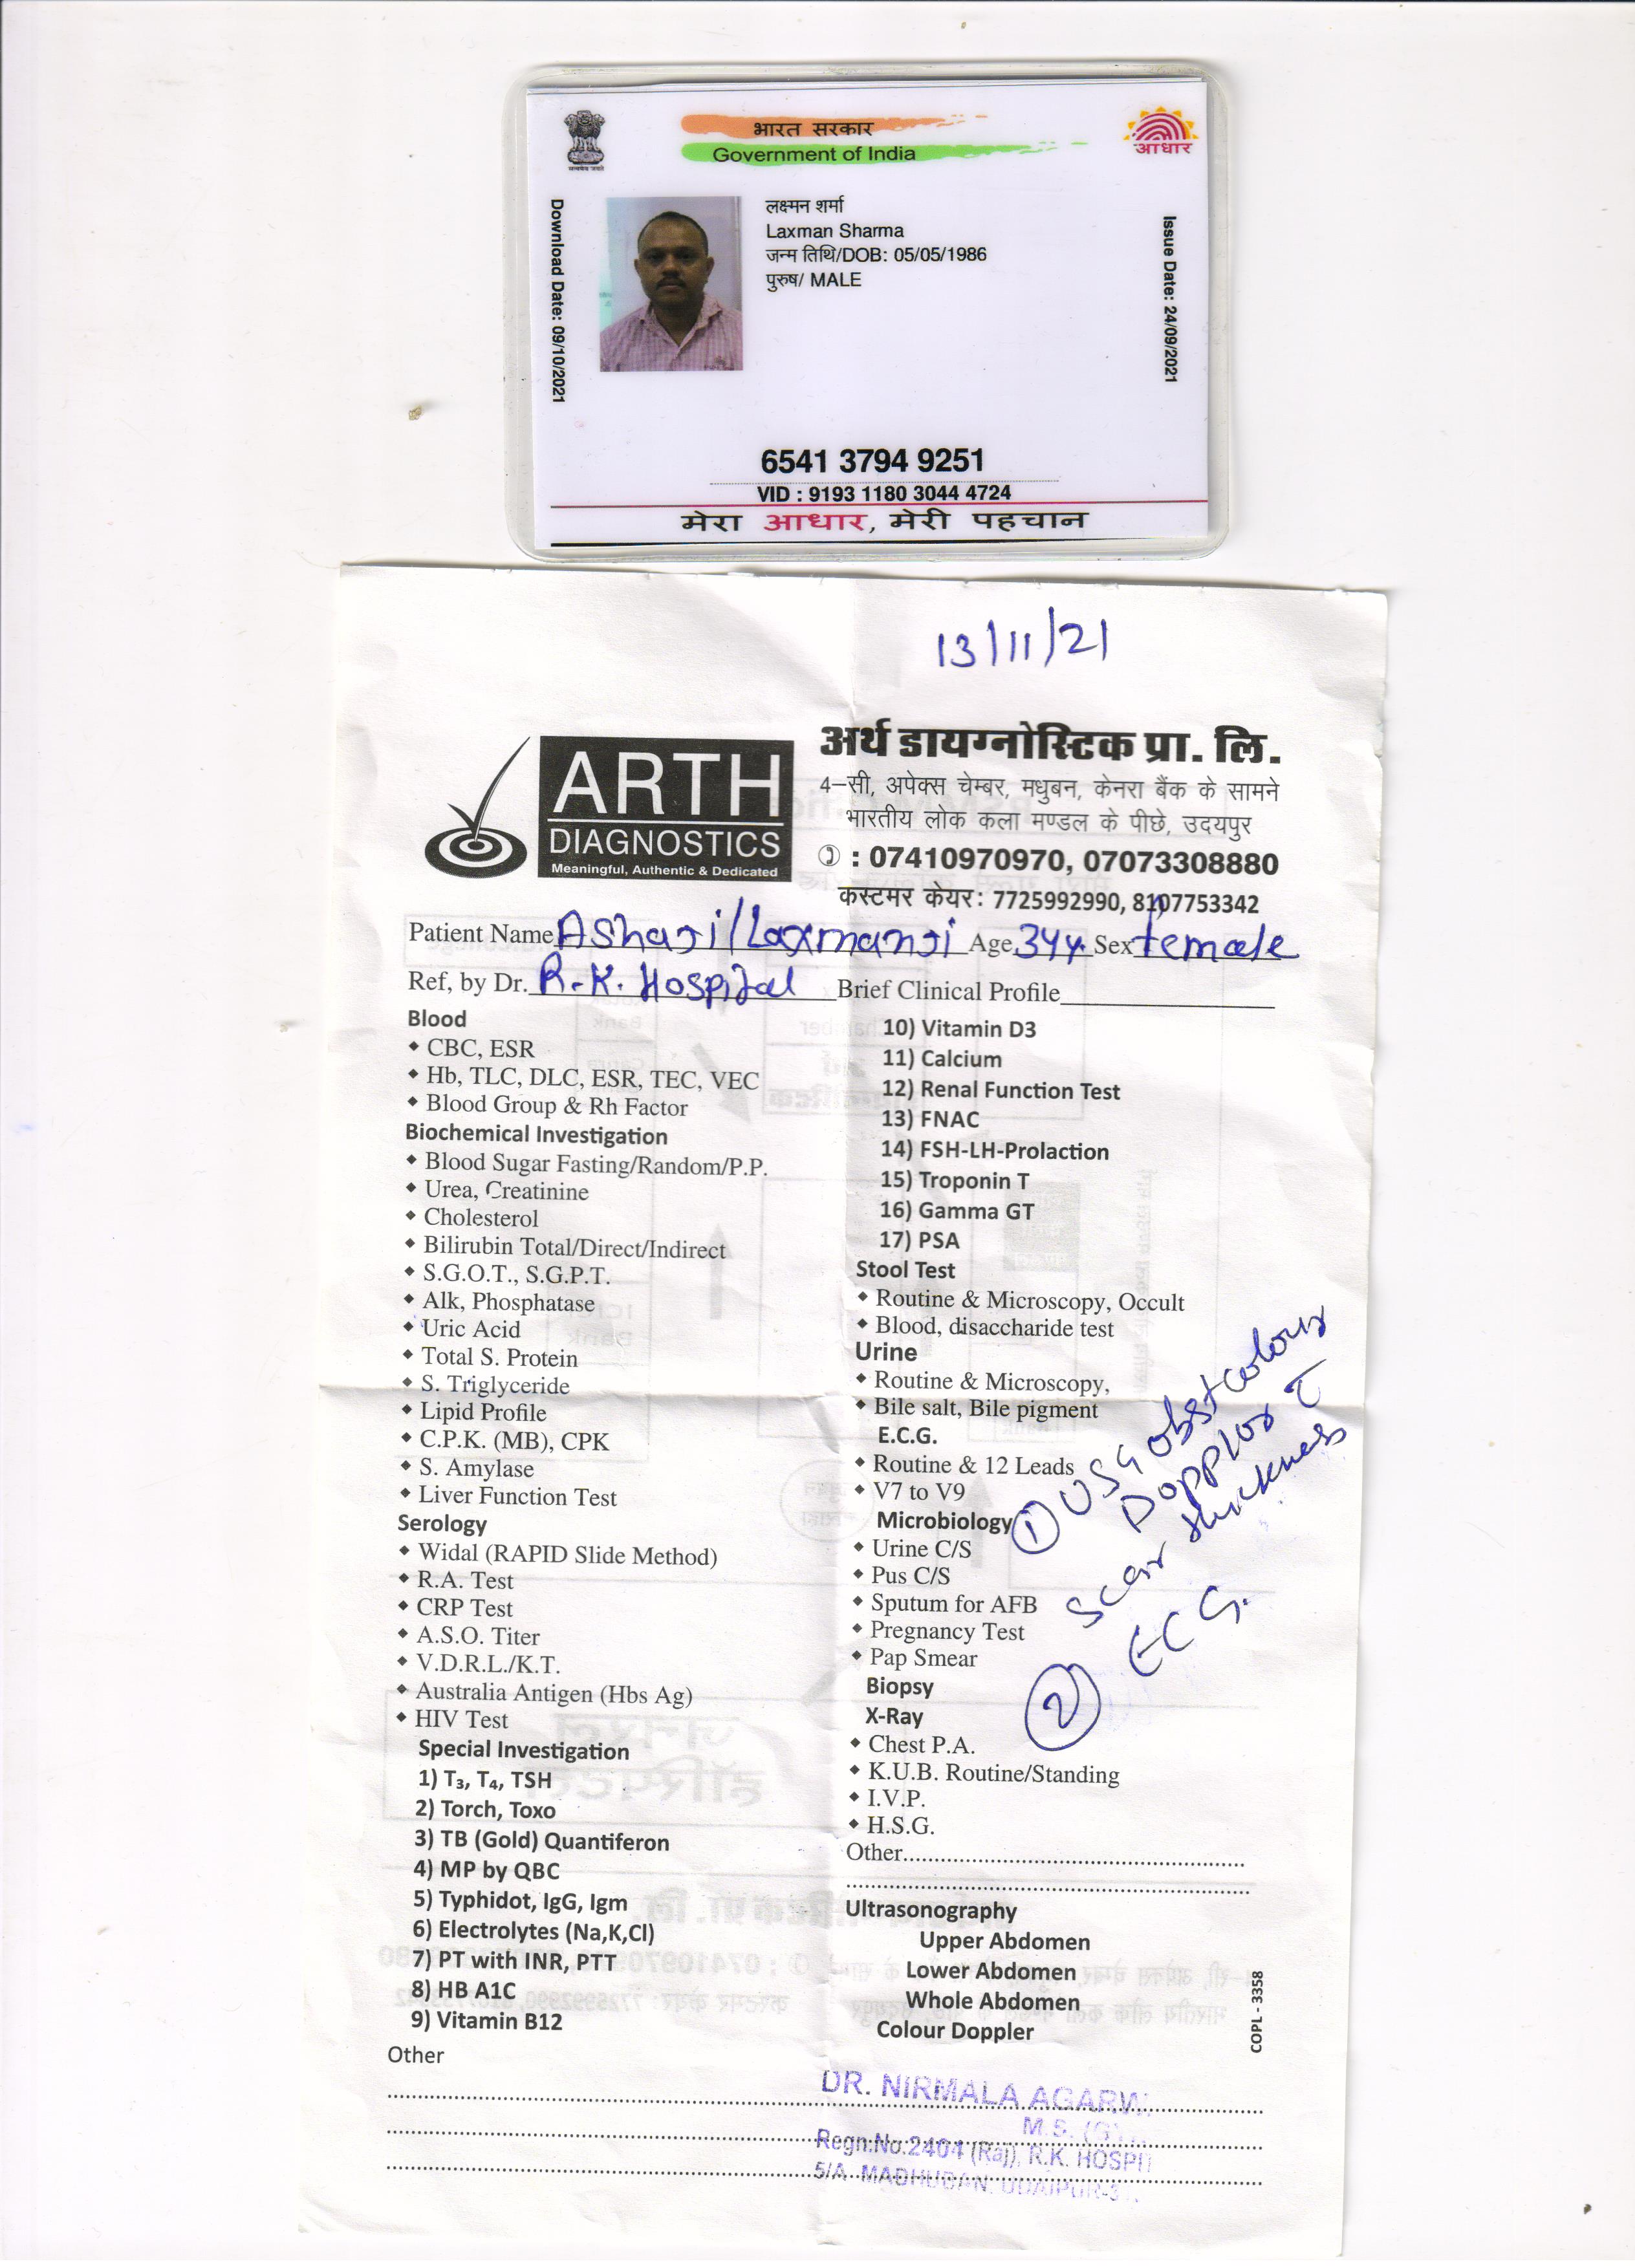 भारत सरकार
Government of India
आधार
Download Date: 09/10/2021
लक्ष्मन शर्मा
Laxman Sharma
जन्म तिथि/DOB: 05/05/1986
पुरुष/ MALE
Issue Date: 24/09/2021
6541 3794 9251
VID : 9193 1180 3044 4724
मेरा आधार, मेरी पहचान
13/11/21
ARTH
DIAGNOSTICS
Meaningful, Authentic & Dedicated
अर्थ डायग्नोस्टिक प्रा. लि.
4-सी, अपेक्स चेम्बर, मधुबन, केनरा बैंक के सामने
भारतीय लोक कला मण्डल के पीछे, उदयपुर
: 07410970970, 07073308880
कस्टमर केयर: 7725992990, 8107753342
Patient Name Ashaji/Laxmanji Age 34y. Sex female
Ref, by Dr. R.K. Hospital Brief Clinical Profile
Blood
CBC, ESR
Hb, TLC, DLC, ESR, TEC, VEC
Blood Group & Rh Factor
Biochemical Investigation
Blood Sugar Fasting/Random/P.P.
Urea, Creatinine
Cholesterol
Bilirubin Total/Direct/Indirect
S.G.O.T., S.G.P.T.
Alk, Phosphatase
Uric Acid
Total S. Protein
S. Triglyceride
Lipid Profile
C.P.K. (MB), CPK
S. Amylase
Liver Function Test
Serology
Widal (RAPID Slide Method)
R.A. Test
CRP Test
A.S.O. Titer
V.D.R.L./K.T.
Australia Antigen (Hbs Ag)
HIV Test
Special Investigation
1) T₃, T₄, TSH
2) Torch, Toxo
3) TB (Gold) Quantiferon
4) MP by QBC
5) Typhidot, IgG, Igm
6) Electrolytes (Na,K,Cl)
7) PT with INR, PTT
8) HB A1C
9) Vitamin B12
Other
10) Vitamin D3
11) Calcium
12) Renal Function Test
13) FNAC
14) FSH-LH-Prolaction
15) Troponin T
16) Gamma GT
17) PSA
Stool Test
Routine & Microscopy, Occult
Blood, disaccharide test
Urine
Routine & Microscopy,
Bile salt, Bile pigment
E.C.G.
Routine & 12 Leads
V7 to V9
Microbiology
Urine C/S
Pus C/S
Sputum for AFB
Pregnancy Test
Pap Smear
Biopsy
X-Ray
Chest P.A.
K.U.B. Routine/Standing
I.V.P.
H.S.G.
Other
Ultrasonography
Upper Abdomen
Lower Abdomen
Whole Abdomen
Colour Doppler
COPL - 3358
1 USG obst colour
Dopplor c
scar thickness
2 ECG.
DR. NIRMALA AGARW
M.S. (GY
Regn.No.2404 (Raj), R.K. HOSPI
5/A MADHUBAN, UDAIPUR-3